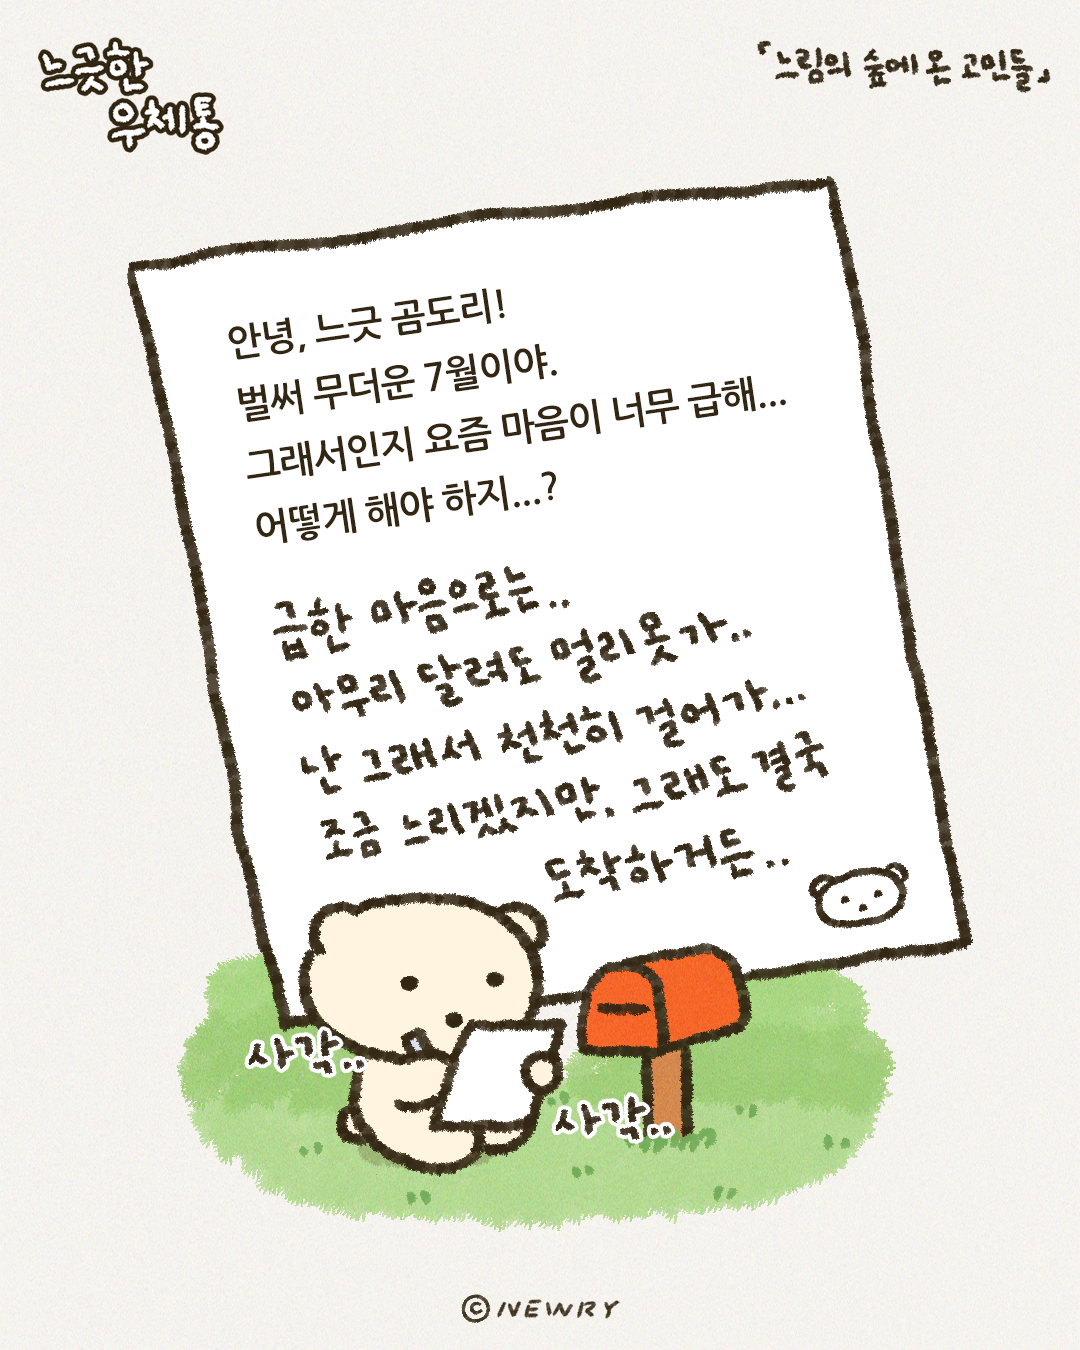 느긋한
우체통
「느림의 숲에 온 고민들」
안녕, 느긋 곰도리!
벌써 무더운 7월이야.
그래서인지 요즘 마음이 너무 급해...
어떻게 해야 하지...?
급한 마음으로는..
아무리 달려도 멀리 못 가..
난 그래서 천천히 걸어가...
조금 느리겠지만, 그래도 결국
도착하거든..
사각..
사각..
©NEWRY